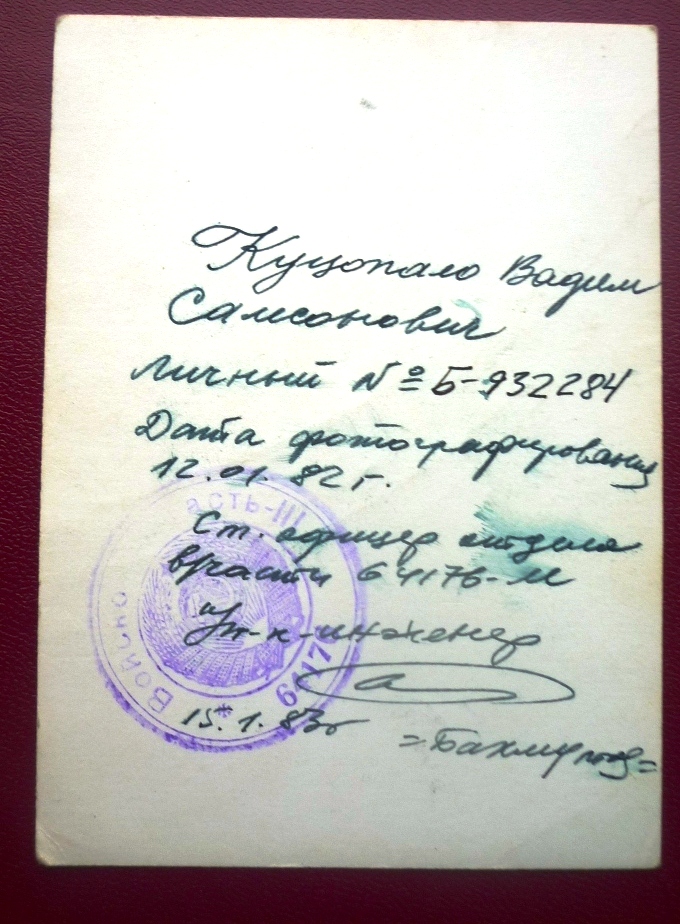 Куцопало Вадим
Самсонович
Личный № Б-932284
Дата фотографирования
12.01.82 г.
Ст. офицер отдела
в/части 64176-М
п/п-к-инженер
15.1.83г
=Бахмутов=
Войско
асть-III
6417